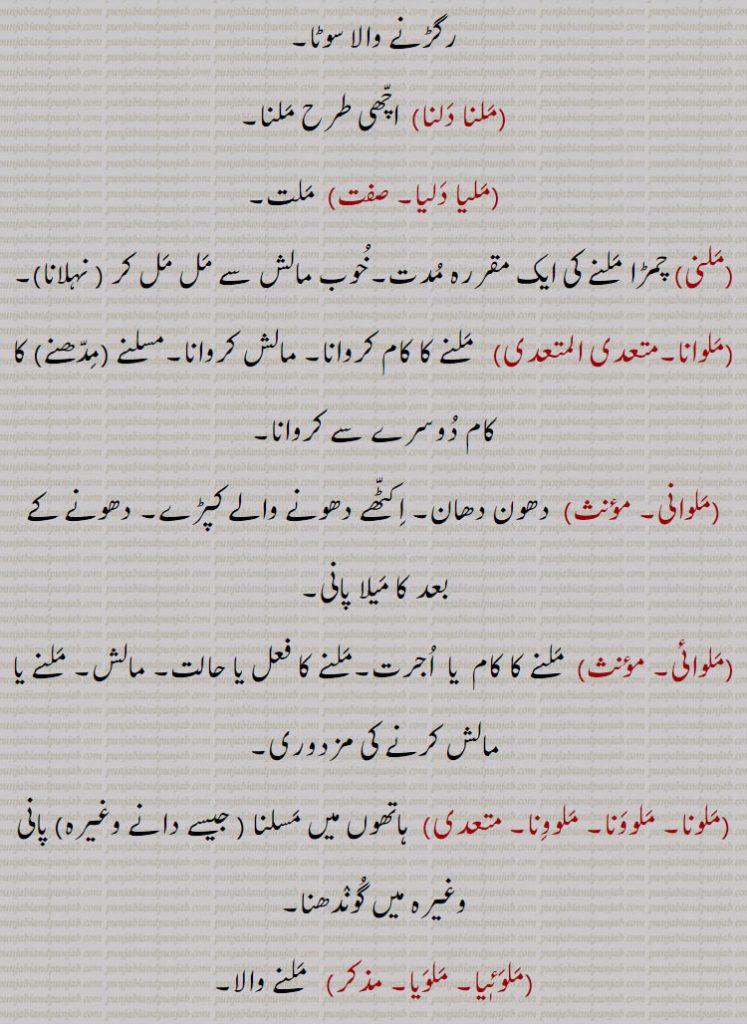 رگڑنے والا سوٹا۔
(مَلنا دَلنا) اچّھی طرح مَلنا۔
(مَلیا دَلیا۔ صفت) مَلت۔
(مَلنی) چمڑا مَلنے کی ایک مقررہ مُدت۔خُوب مالش سے مَل مَل کر ( نہلانا)۔
(مَلوانا۔متعدی المتعدی) مَلنے کا کام کروانا۔ مالش کروانا۔مسلنے (مِدّھنے) کا
کام دُوسرے سے کروانا۔
(مَلوانی۔ مؤنث) دھون دھان۔ اِکٹّھے دھونے والے کپڑے۔ دھونے کے
بعد کا مَیلا پانی۔
(مَلوائی۔ مؤنث) مَلنے کا کام یا اُجرت۔مَلنے کا فعل یا حالت۔ مالش۔ مَلنے یا
مالش کرنے کی مزدوری۔
(مَلونا۔ مَلووَنا۔ مَلووِنا۔ متعدی) ہاتھوں میں مَسلنا ( جیسے دانے وغیرہ) پانی
وغیرہ میں گُونْدھنا۔
(مَلوَئِیا۔ مَلوَیا۔ مذکر) مَلنے والا۔
punjabiandpunjab.com